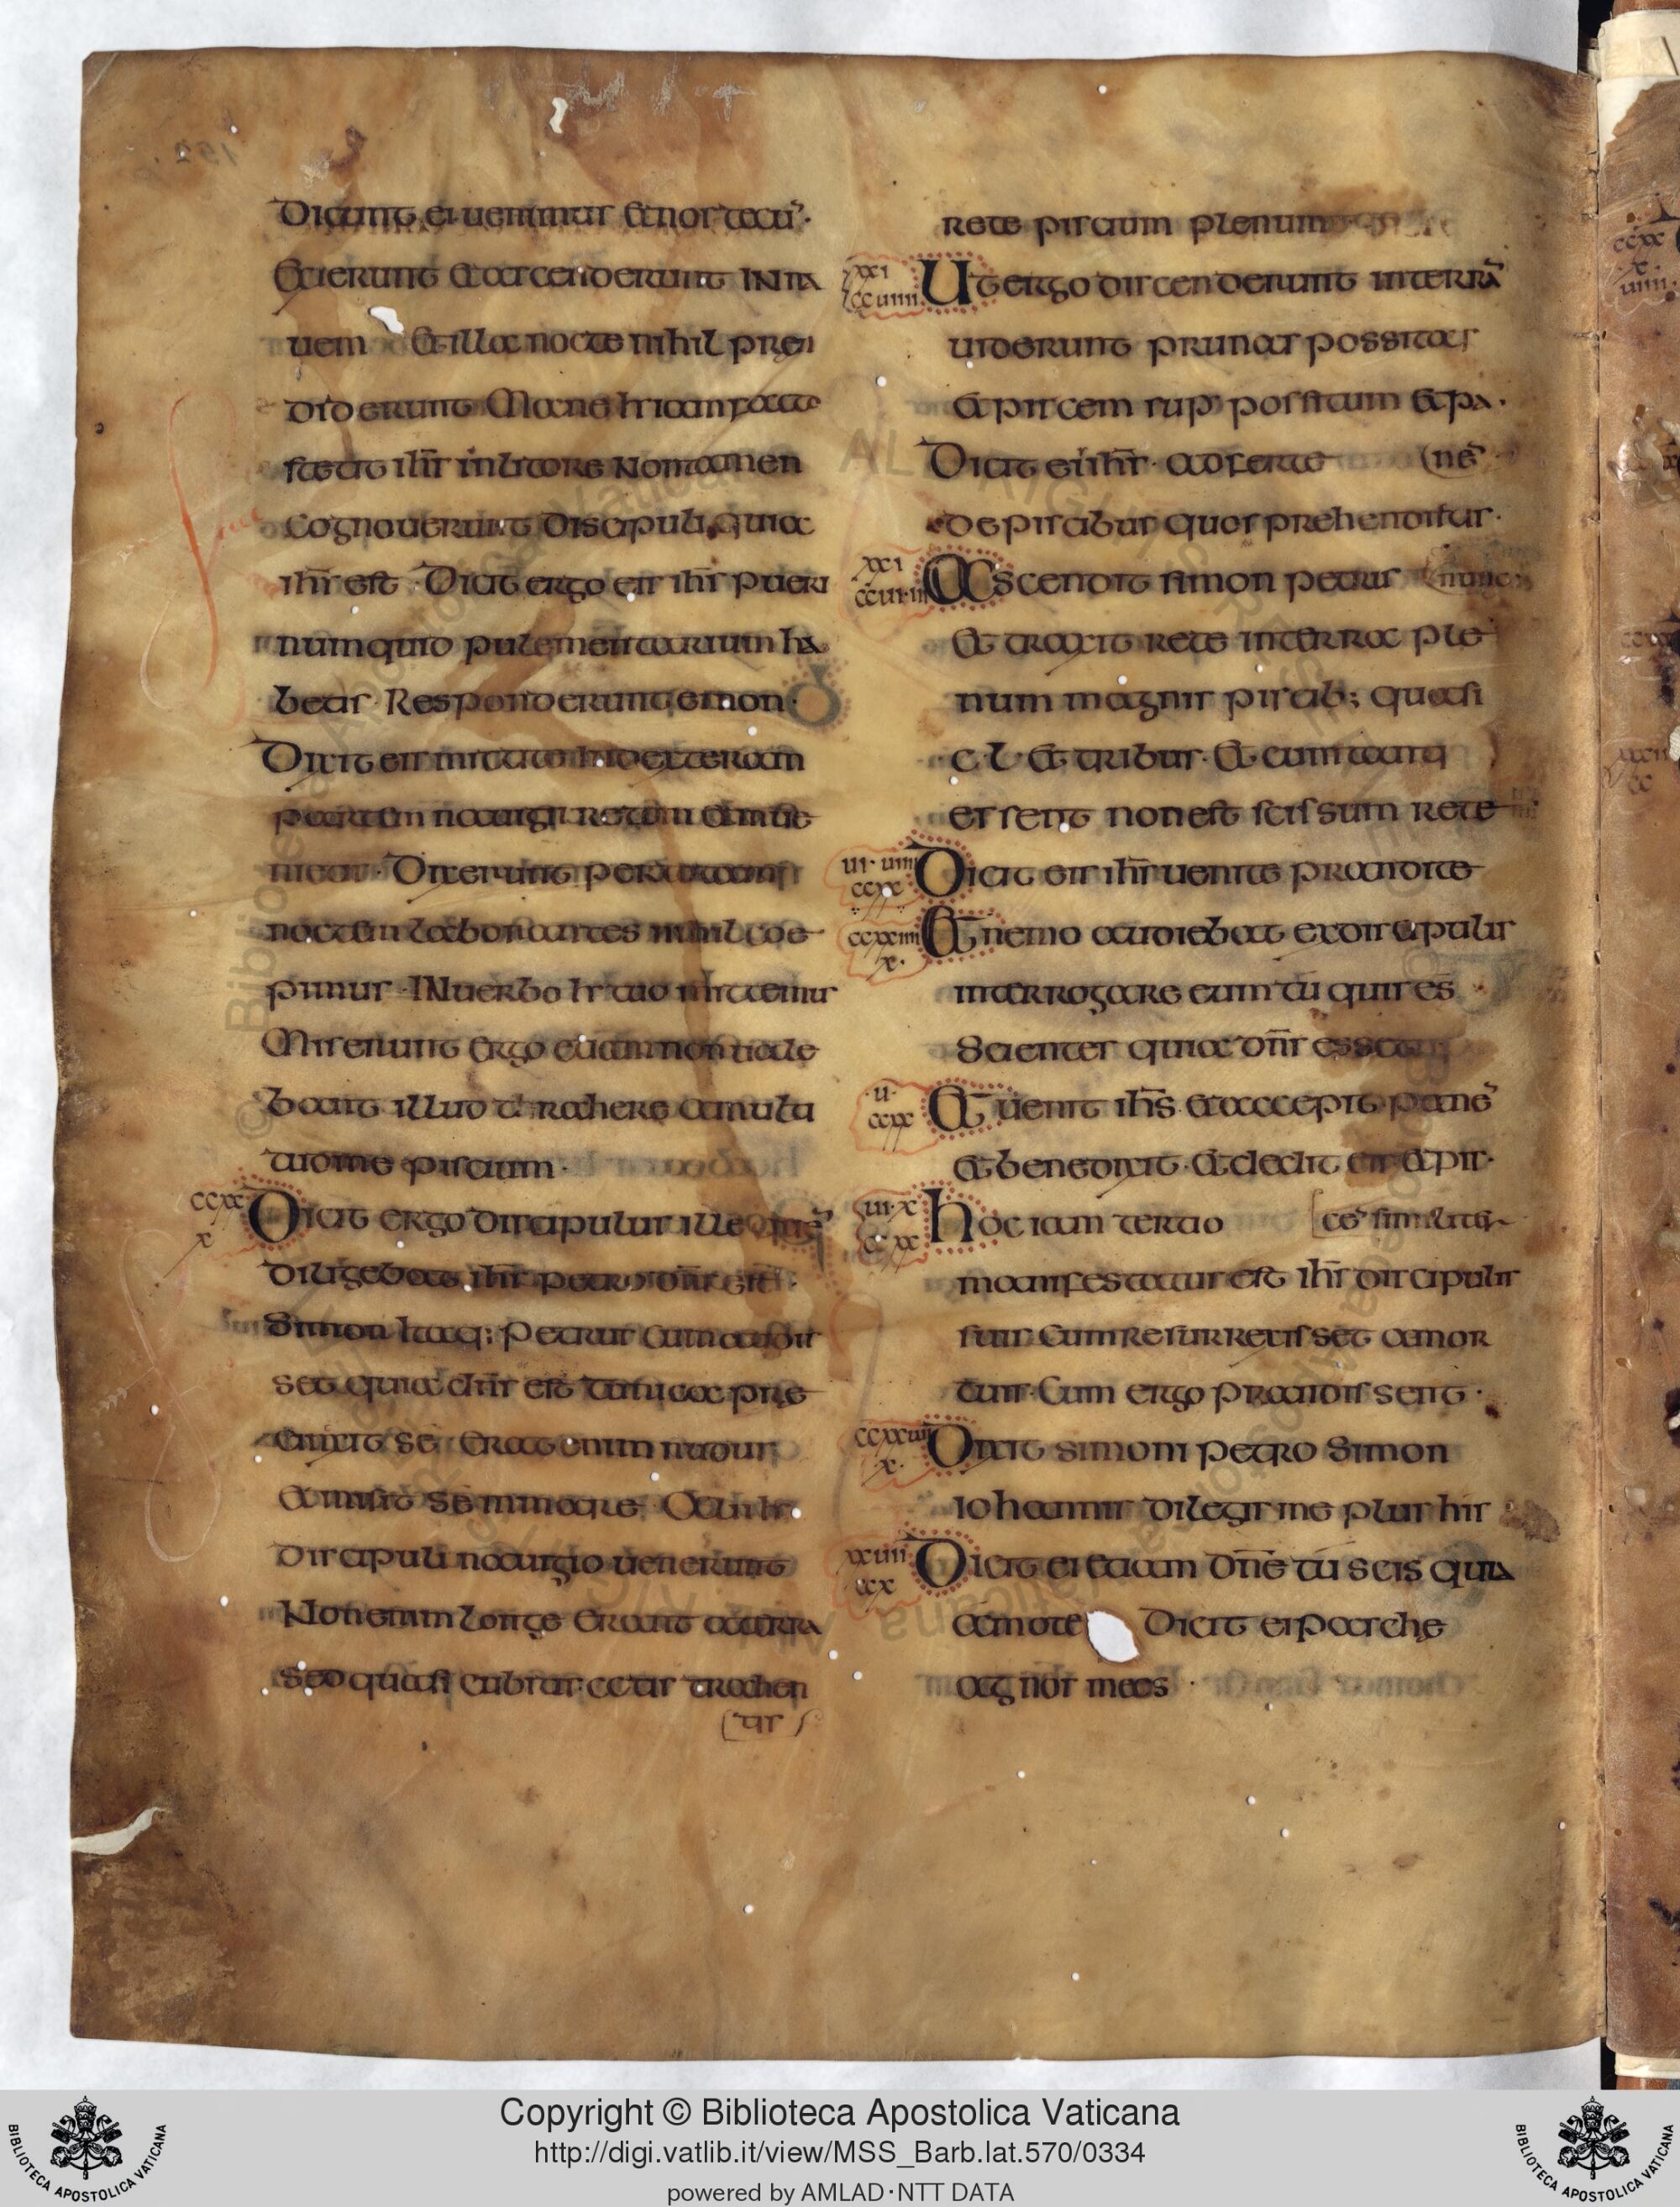 Dicunt ei uenimus et nos tecū·
Exierunt et ascenderunt in na
uem Et illa nocte nihil pren
diderunt Mane h iam facto
stetit ihs in litore Non tamen
Cognouerunt Discipuli quia
ihs est · Dicit ergo eis ihs pueri
numquid pulementarium ha
betis · Responderunt ei non ·
Dixit eis mittite in dexteram
partem nauigii rete et inue
nietis · Dixerunt per totam
noctem laborantes nihil coe
pimus · In uerbo h tuo mittemus
Misenunt ergo et iam non uale
bant illud trahere a multi
tudine piscium ·
Dicit ergo discipulus ille quē
diligebat ihs petro dns est ·
Simon itaq; Petrus Cum audis
set quia dns est tunica pre
cinxit se erat enim nudus
Et misit se in mare · Alii h
discipuli nauigio uenerunt
Non enim longe Erant a terra
Sed quasi Cubitis · CC tis trahen
tis
rete piscium plenum
Ut ergo discenderunt in terrā
uiderunt prunas possitas
Et piscem sup positum Et pa·
Dicit ei ihs · adferte (nē
de piscibus quos prehendistis ·
Ascendit simon petrus (nunc
Et traxit rete in terra ple
num magnis piscib; quasi
c·l· Et tribus · Et cum tanti
essent non est scissum rete
Dicit eis ihs uenite prandite
Et nemo audiebat ex discipulis
interrogare eum tu quis es
Scientes quia dns esset
Et uenit ihs et accepit panē
Et benedixit · Et dedit eis Et pis·
hoc iam tertio [cē similiter
manifestatus est ihs discipulis
suis Cum resurrexisset a mor
tuis · Cum ergo prandissent ·
Dixit simoni petro Simon
Iohannis diligis me plus his
Dicit ei etiam dne tu scis quia
amo te Dicit ei pasche
agnos meos ·
xxi
ccuiiii
xxi
ccxx
ccxxiiii
x·
u
ccxx
iii·x
ccxx
x
x·
Copyright © Biblioteca Apostolica Vaticana
http://digi.vatlib.it/view/MSS_Barb.lat.570/0334
powered by AMLAD·NTT DATA
BIBLIOTECA APOSTOLICA VATICANA
BIBLIOTECA APOSTOLICA VATICANA